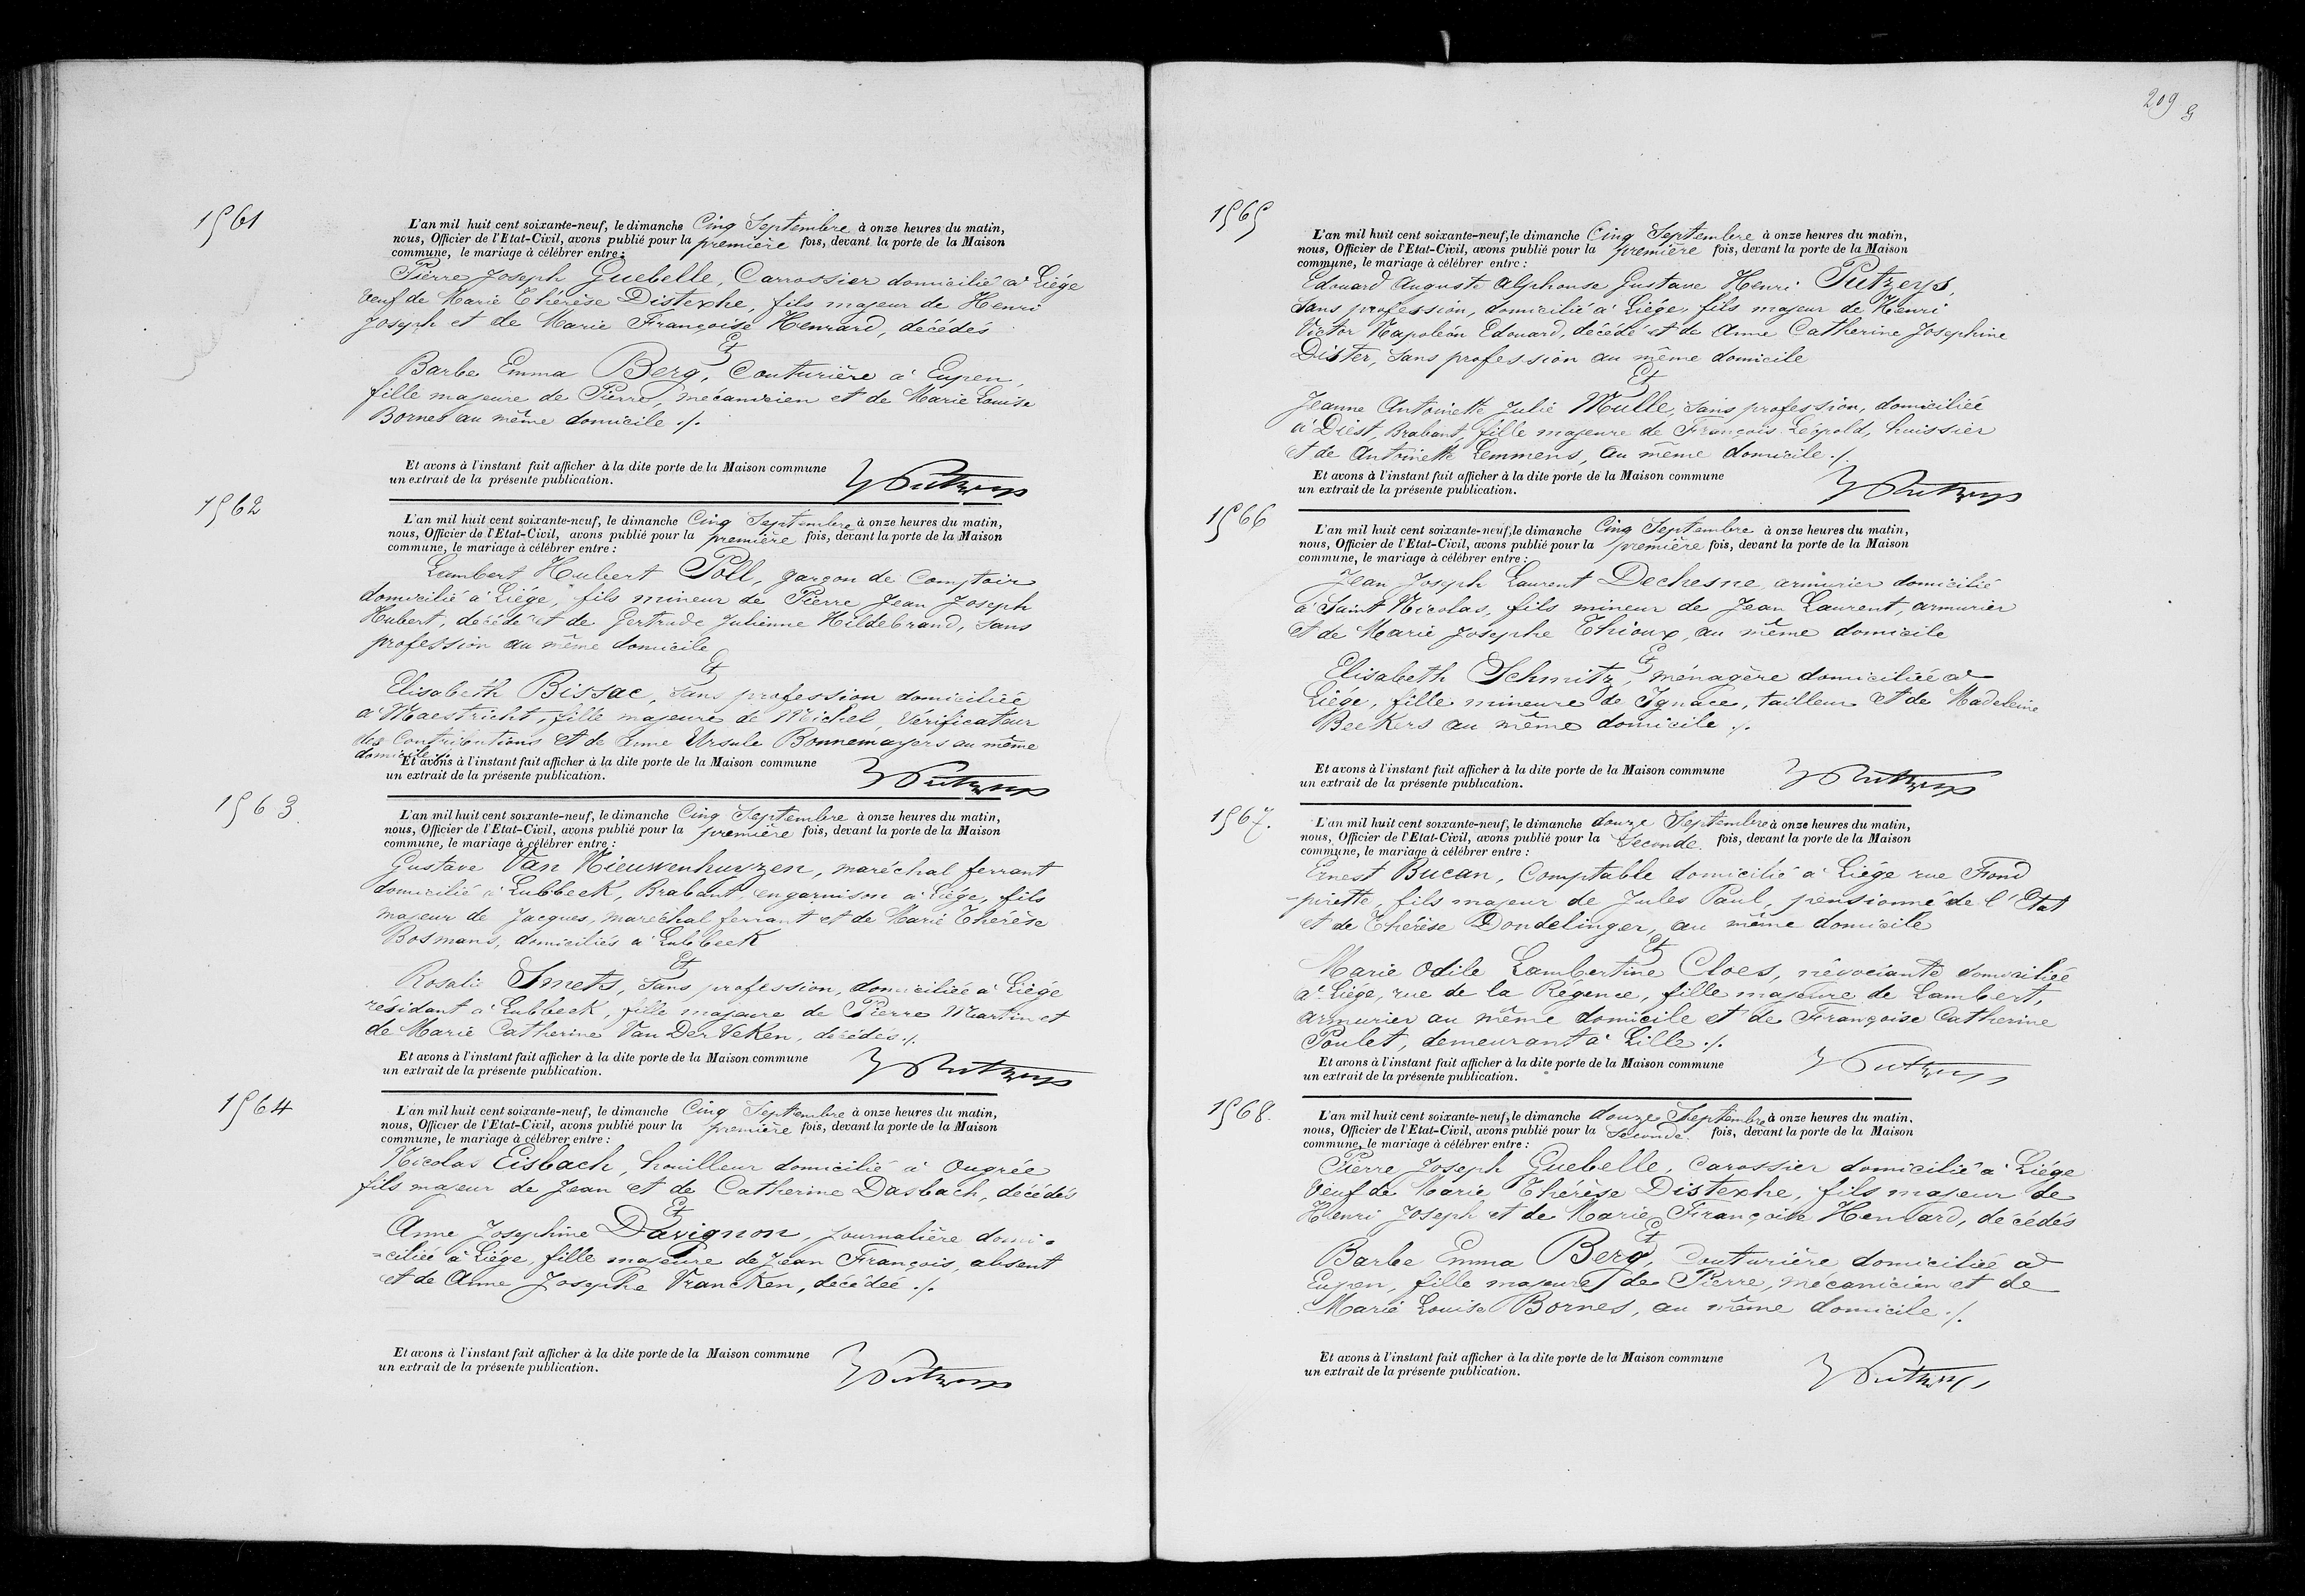 1561
L'an mil huit cent soixante-neuf, le dimanche Cinq Septembre à onze heures du matin,
nous, Officier de l'Etat-Civil, avons publié pour la première fois, devant la porte de la Maison
commune, le mariage à célébrer entre:
Pierre Joseph Guebelle, Carrossier domicilié à Liége
veuf de Marie Thérèse Distexhe, fils majeur de Henri
Joseph et de Marie Françoise Henrard, décédés
Et
Barbe Emma Berg, Couturière à Eupen,
fille majeure de Pierre, mécanicien et de Marie Louise
Bornes au même domicile ./.
Et avons à l'instant fait afficher à la dite porte de la Maison commune
un extrait de la présente publication.
1562
L'an mil huit cent soixante-neuf, le dimanche Cinq Septembre à onze heures du matin,
nous, Officier de l'Etat-Civil, avons publié pour la première fois, devant la porte de la Maison
commune, le mariage à célébrer entre:
Lambert Hubert Poll, garçon de Comptoir
domicilié à Liége, fils mineur de Pierre Jean Joseph
Hubert, décédé et de Gertrude Julienne Hildebrand, sans
profession au même domicile
Et
Elisabeth Bissac, sans profession domiciliée
à Maestricht, fille majeure de Michel, Vérificateur
des Contributions et de Anne Ursule Bonnemayers au même
domicile ./.
Et avons à l'instant fait afficher à la dite porte de la Maison commune
un extrait de la présente publication.
1563.
L'an mil huit cent soixante-neuf, le dimanche Cinq Septembre à onze heures du matin,
nous, Officier de l'Etat-Civil, avons publié pour la première fois, devant la porte de la Maison
commune, le mariage à célébrer entre:
Gustave Van Nieuwenhuyzen, maréchal ferrant
domicilié à Lubbeek, Brabant, en garnison à Liége, fils
majeur de Jacques, maréchal ferrant et de Marie Thérèse
Bosmans, domiciliés à Lubbeek
Et
Rosalie Smets, sans profession, domiciliée à Liége
résidant à Lubbeek, fille majeure de Pierre Martin et
de Marie Catherine Van Der Veken, décédés ./.
Et avons à l'instant fait afficher à la dite porte de la Maison commune
un extrait de la présente publication.
1564
L'an mil huit cent soixante-neuf, le dimanche Cinq Septembre à onze heures du matin,
nous, Officier de l'Etat-Civil, avons publié pour la première fois, devant la porte de la Maison
commune, le mariage à célébrer entre:
Nicolas Eisbach, houilleur domicilié à Ougrée
fils majeur de Jean et de Catherine Dasbach, décédés
Et
Anne Josephine Davignon, journalière domi-
-ciliée à Liége, fille majeure de Jean François, absent
et de Anne Josephe Vrancken, décédée ./.
Et avons à l'instant fait afficher à la dite porte de la Maison commune
un extrait de la présente publication.
209
1565
L'an mil huit cent soixante-neuf, le dimanche Cinq Septembre à onze heures du matin,
nous, Officier de l'Etat-Civil, avons publié pour la première fois, devant la porte de la Maison
commune, le mariage à célébrer entre:
Edouard Auguste Alphonse Gustave Henri Putzeys,
sans profession, domicilié à Liége, fils majeur de Henri
Victor Napoléon Edouard, décédé et de Anne Catherine Josephine
Dister, sans profession au même domicile
Et
Jeanne Antoinette Julie Mulle, sans profession, domiciliée
à Diest, Brabant, fille majeure de François Léopold, huissier
et de Antoinette Lemmens, au même domicile ./.
Et avons à l'instant fait afficher à la dite porte de la Maison commune
un extrait de la présente publication.
1566
L'an mil huit cent soixante-neuf, le dimanche Cinq Septembre à onze heures du matin,
nous, Officier de l'Etat-Civil, avons publié pour la première fois, devant la porte de la Maison
commune, le mariage à célébrer entre:
Jean Joseph Laurent Dechesne, armurier domicilié
à Saint Nicolas, fils mineur de Jean Laurent, armurier
et de Marie Josephe Thioux, au même domicile
Et
Elisabeth Schmitz, ménagère domiciliée à
Liége, fille mineure de Ignace, tailleur et de Madeleine
Beekers au même domicile ./.
Et avons à l'instant fait afficher à la dite porte de la Maison commune
un extrait de la présente publication.
1567.
L'an mil huit cent soixante-neuf, le dimanche douze Septembre à onze heures du matin,
nous, Officier de l'Etat-Civil, avons publié pour la Seconde fois, devant la porte de la Maison
commune, le mariage à célébrer entre:
Ernest Bucan, Comptable domicilié à Liége rue Fond
pirette, fils majeur de Jules Paul, pensionné de l'Etat
et de Thérèse Dondelinger, au même domicile
Et
Marie Odile Lambertine Cloes, négociante domiciliée
à Liége, rue de la Régence, fille majeure de Lambert,
armurier au même domicile et de Françoise Catherine
Poulet, demeurant à Lille ./.
Et avons à l'instant fait afficher à la dite porte de la Maison commune
un extrait de la présente publication.
1568.
L'an mil huit cent soixante-neuf, le dimanche douze Septembre à onze heures du matin,
nous, Officier de l'Etat-Civil, avons publié pour la Seconde fois, devant la porte de la Maison
commune, le mariage à célébrer entre:
Pierre Joseph Guebelle, Carossier domicilié à Liége
Veuf de Marie Thérèse Distexhe, fils majeur de
Henri Joseph et de Marie Françoise Henrard, décédés
Et
Barbe Emma Berg, Couturière domiciliée à
Eupen, fille majeure de Pierre, mécanicien et de
Marie Louise Bornes, au même domicile ./.
Et avons à l'instant fait afficher à la dite porte de la Maison commune
un extrait de la présente publication.